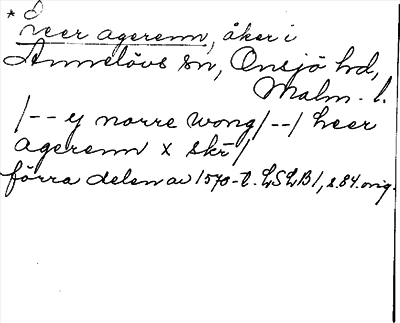 * heer agerenn, åker i
Annelövs sn, Onsjö hd,
Malm. l.
/-- y norre wong/--/ heer
agerenn x skr/
förra delen av 1570-t. LSLB1, s.84. orig.